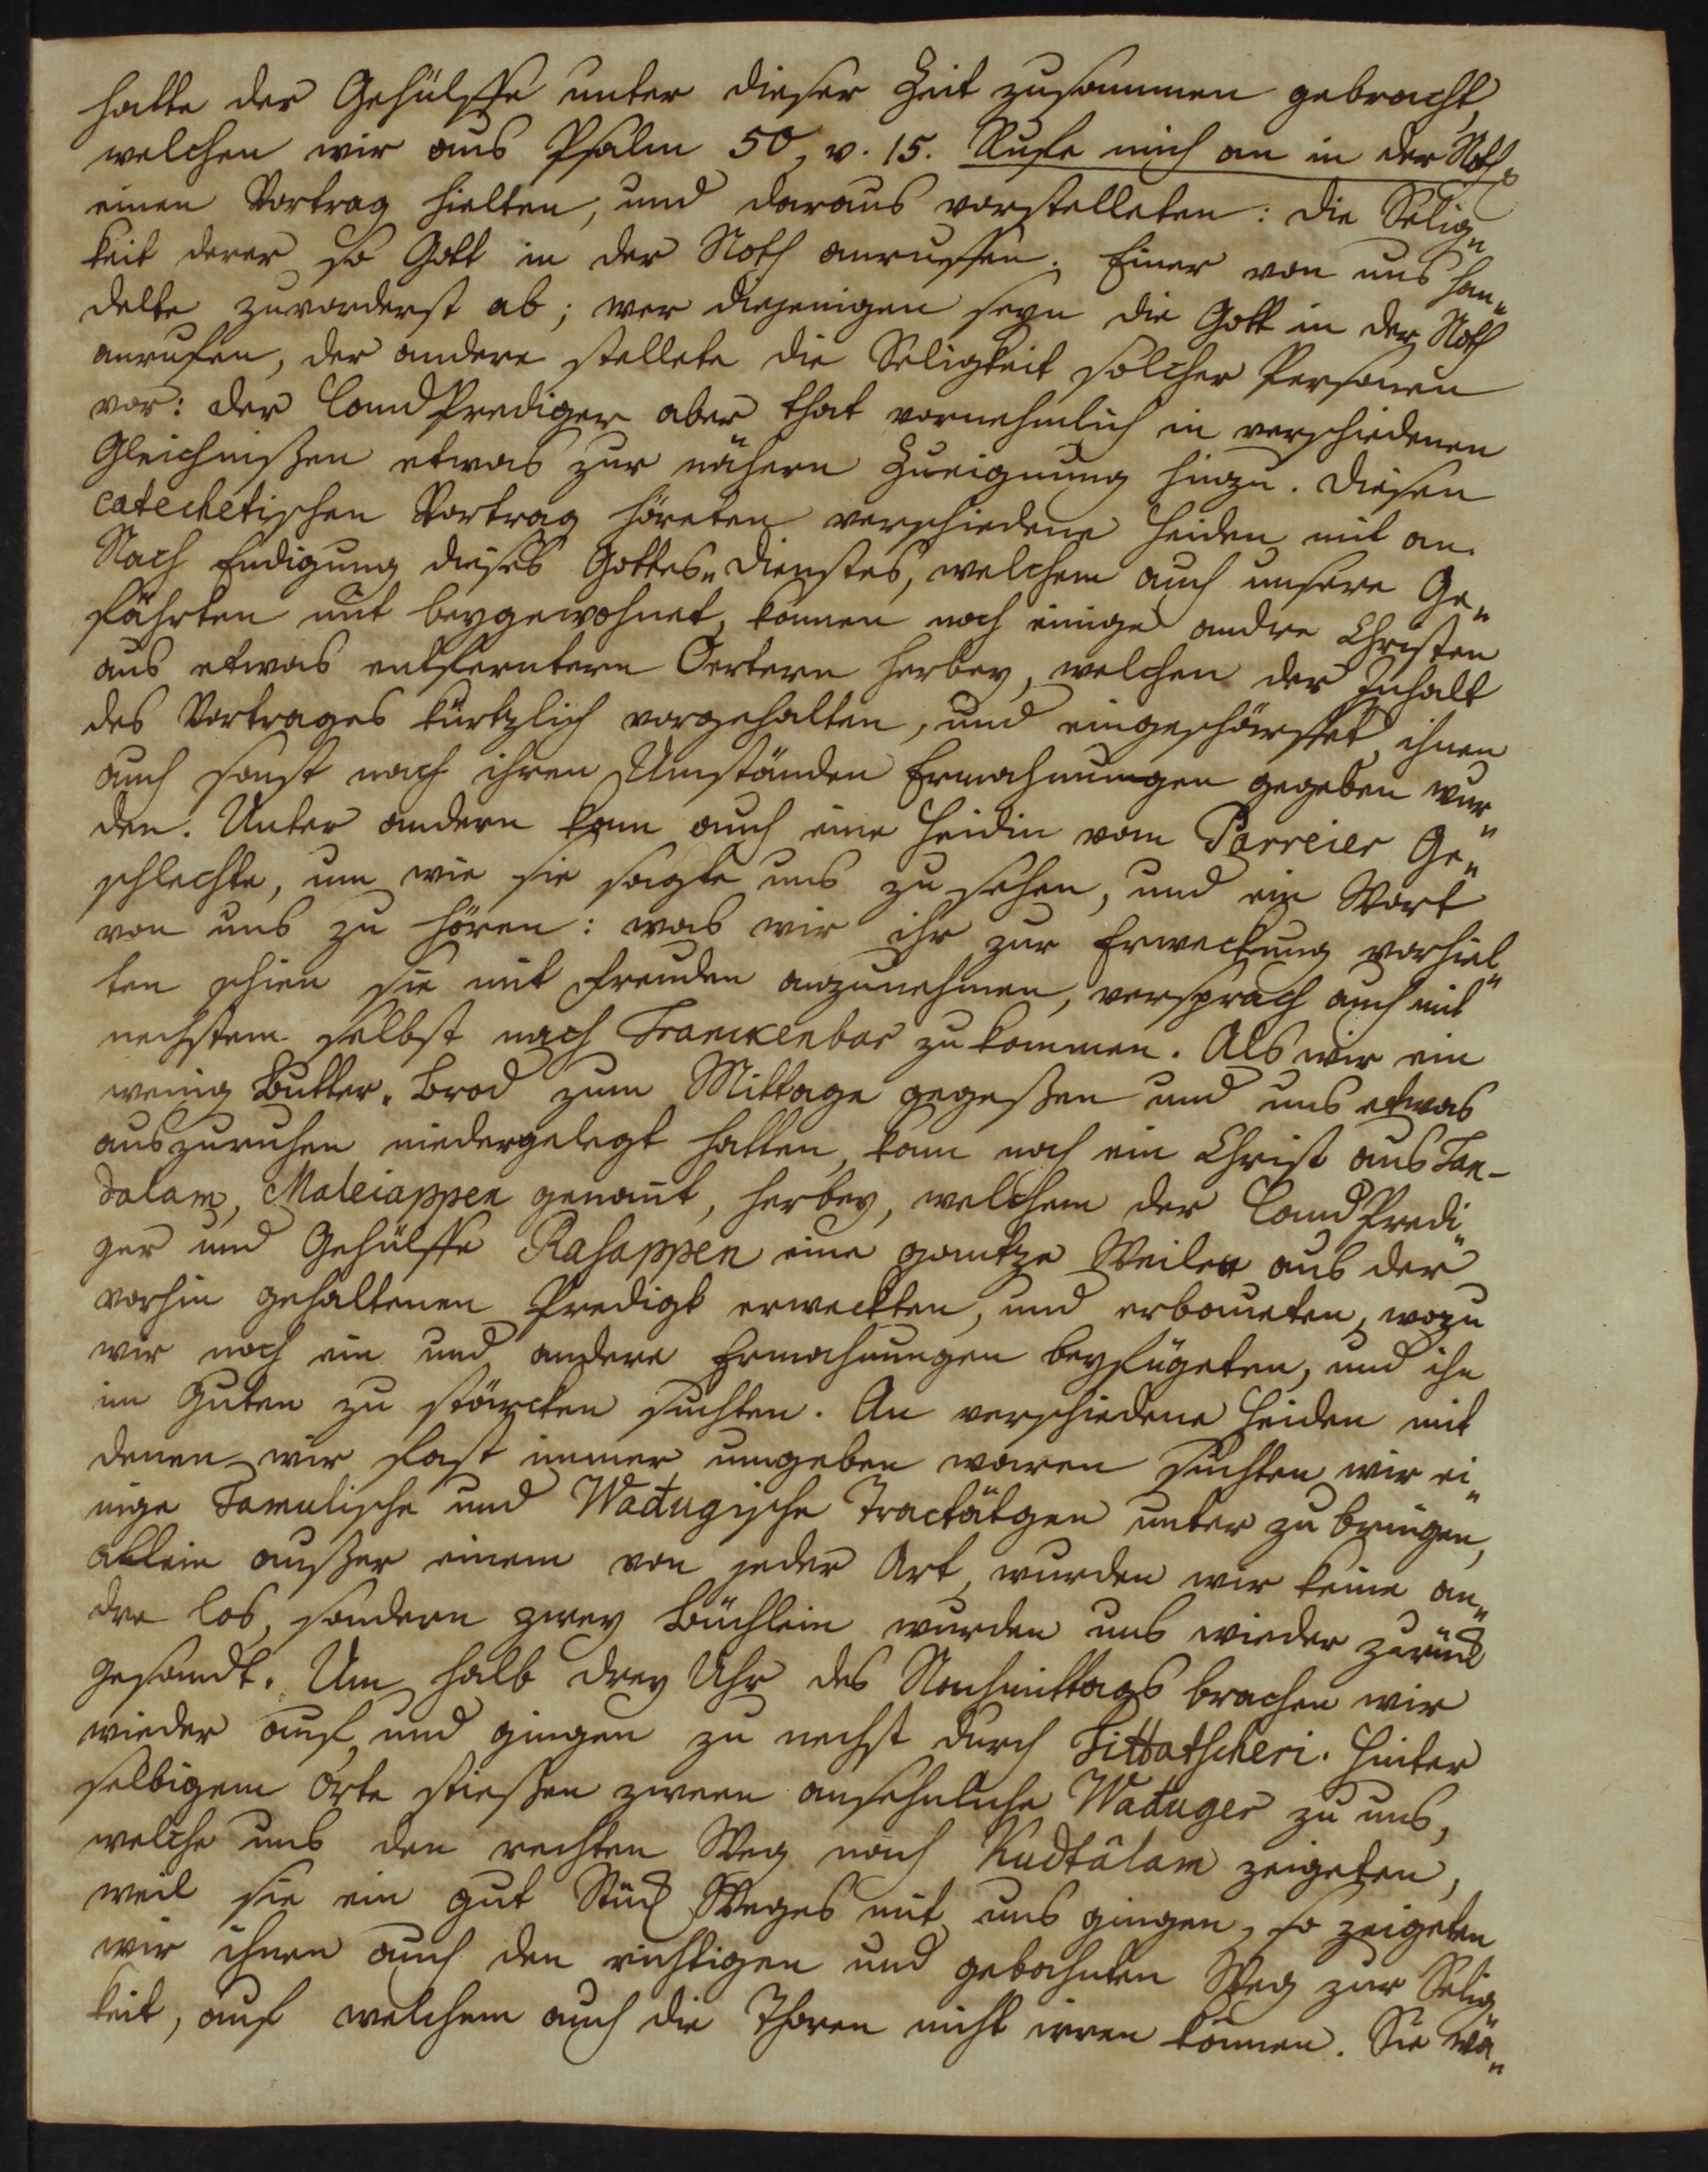 hatte der Gehülffe unter dieser Zeit zusammen gebracht,
welchen wir aus Psalm 50, v. 15. Rufe mich an in der Noth
einen Vortrag hielten, und daraus vorstelleten: die Selig„
keit derer so Gott in der Noth anruffen. Einer von uns han„
delte zuvorderst ab; wer diejenigen seyn die Gott in der Noth
anrufen, der andere stellete die Seligkeit solcher Personen
vor: der Land Prediger aber that vornehmlich in verschiedenen
Gleichnißen etwas zur nähern Zueignung hinzu. Diesen
catechetischen Vortrag höreten verschiedene Heiden mit an.
Nach Endigung dieses Gottes„Dienstes, welchem auch unsere Ge„
fährten mit beygewohnet, kamen noch einige andre Christen
aus etwas entferntern Oertern herbey, welchen der Inhalt
des Vortrages kürtzlich vorgehalten, und eingeschärffet, ihnen
auch sonst nach ihren Umständen Ermahnungen gegeben wur„
den. Unter andern kam auch eine Heidin vom Parreier Ge„
schlechte, um wie sie sagte uns zu sehen, und ein Wort
von uns zu hören: was wir ihr zur Erweckung vorhiel„
ten schien sie mit Freuden anzunehmen, versprach auch mit
nechstem selbst nach Tranckenbar zu kommen. Als wir ein
wenig Butter„Brod zum Mittage gegeßen und uns etwas
auszuruhen niedergelegt hatten, kam noch ein Christ aus Tan-
dalam, Maleiappen genant, herbey, welchem der Land Predi„
ger und Gehülffe Rasappen eine gantze Weile aus der
vorhin gehaltenen Predigt erweckten, und erbaueten, wozu
wir noch ein und andere Ermahnungen beyfügeten, und ihn
im Guten zu stärcken suchten. An verschiedene Heiden mit
denen wir fast immer umgeben waren suchten wir ei„
nige Tamulische und Wadugische Tractätgen unter zu bringen,
allein außer einem von jeder Art, wurden wir keine an„
dre los, sondern zwey Büchlein wurden uns wieder zurück
gesandt. Um halb drey Uhr des Nachmittags brachen wir
wieder auf und gingen zu nechst durch Tittatscheri. Hinter
selbigem Orte stießen zween ansehnliche Waduger zu uns,
welche uns den rechten Weg nach Kudtâlam zeigeten,
weil sie ein gut Stück Weges mit uns gingen, so zeigeten
wir ihnen auch den richtigen und gebahnten Weg zur Selig
keit, auf welchem auch die Thoren nicht irren können. Sie wä„